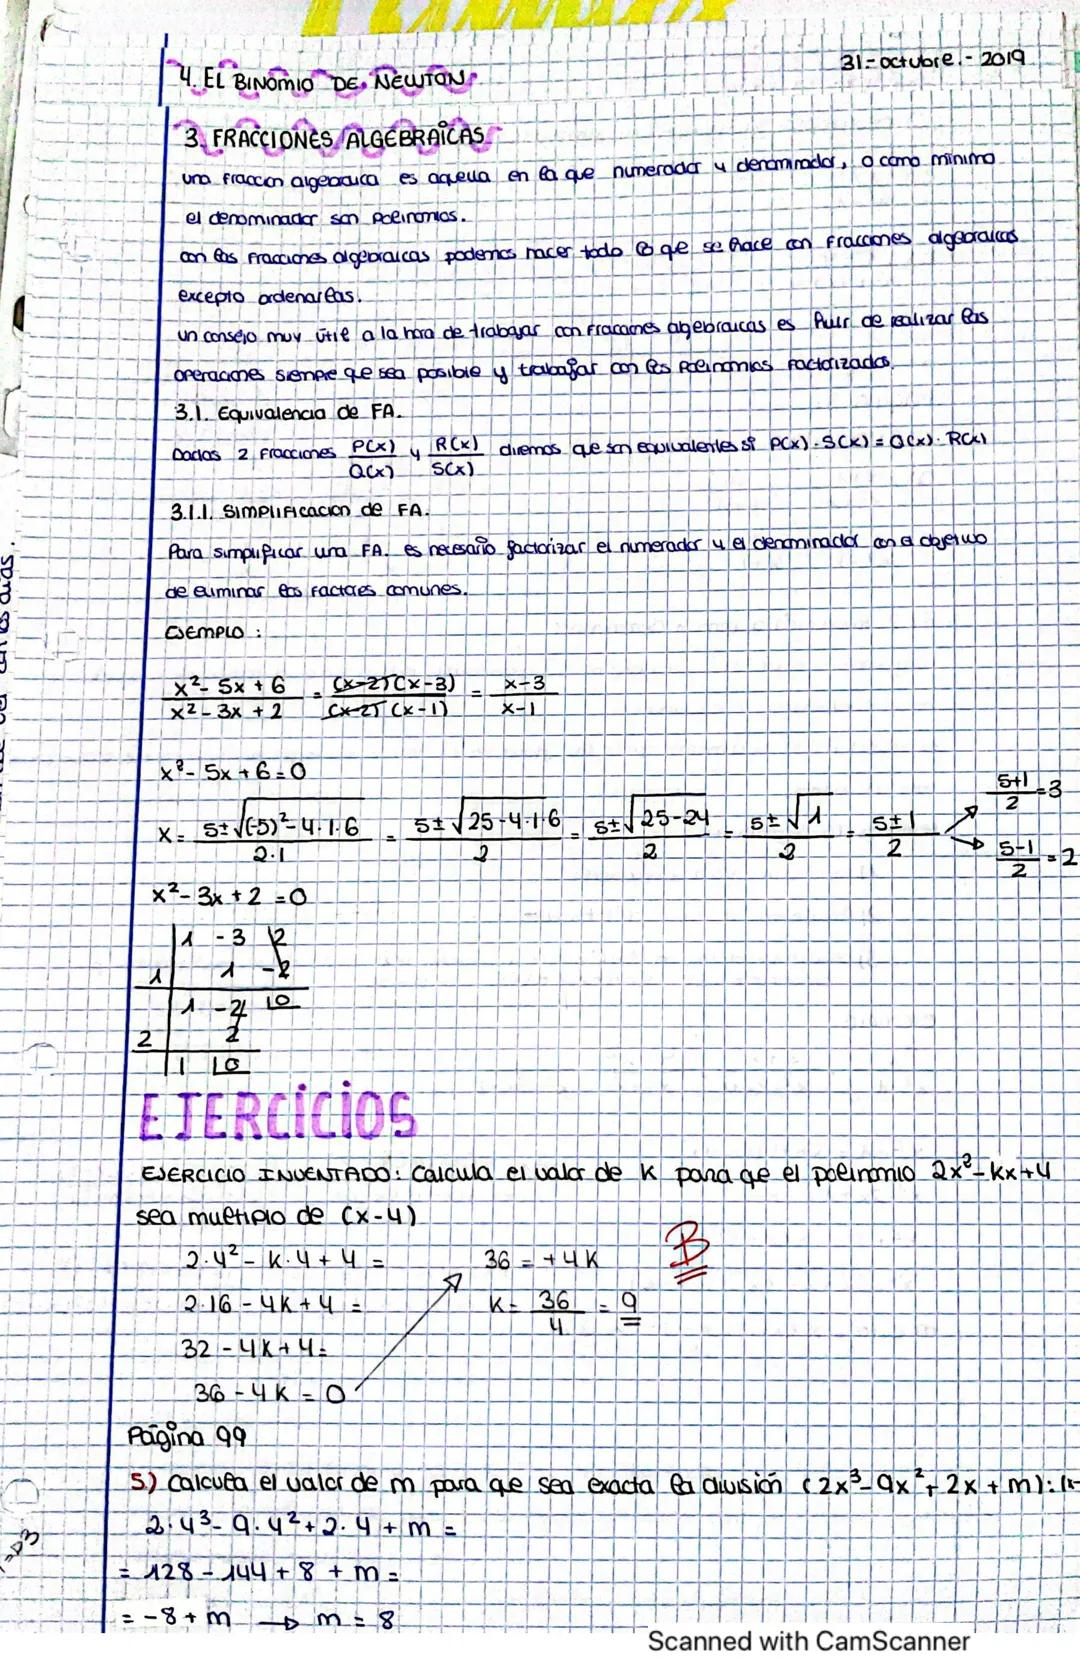 31-octubre.- 2019
4. EL BINOMIO DE NEWTON
3. FRACCIONES ALGEBRAICAS
una fraccion algebraica es aquella en la que numerador y denominador, o como minimo
el denominador son polinomios.
con las fracciones algebraicas podemos hacer todo lo que se hace con fracciones algebraicas
excepto ordenarlas.
un consejo muy útil a la hora de trabajar con fracciones algebraicas es huir de realizar las
operaciones siempre que sea posible y trabajar con los polinomios factorizados.
3.1. Equivalencia de FA.
Dadas 2 fracciones P(x)/Q(x) y R(x)/S(x) diremos que son equivalentes si P(x)·S(x) = Q(x)·R(x)
3.1.1. Simplificacion de FA.
Para simplificar una FA. es necesario factorizar el numerador y el denominador con el objetivo
de eliminar los factores comunes.
EJEMPLO :
x²- 5x + 6 / x² - 3x + 2 = (x-2)(x-3) / (x-2)(x-1) = x-3 / x-1
x²- 5x + 6 = 0
x = 5±√(-5)²-4·1·6 / 2·1 = 5±√25-4·1·6 / 2 = 5±√25-24 / 2 = 5±√1 / 2 = 5±1 / 2 → 5+1 / 2 = 3
→ 5-1 / 2 = 2
x²- 3x + 2 = 0
1 -3 2
1 1 -2
1 -2 0
2 2
1 0
EJERCICIOS
EJERCICIO INVENTADO: Calcula el valor de K para que el polinomio 2x²- kx+4
sea multiplo de (x-4)
2·4² - K·4 + 4 = 36 = +4K B
2·16 - 4K + 4 = K = 36/4 = 9
32 - 4K + 4 =
36 - 4K = 0
Página 99
5.) Calcula el valor de m para que sea exacta la división (2x³- 9x² + 2x + m):(x-
2·4³- 9·4² + 2·4 + m =
= 128 - 144 + 8 + m =
= -8 + m → m = 8
Scanned with CamScanner